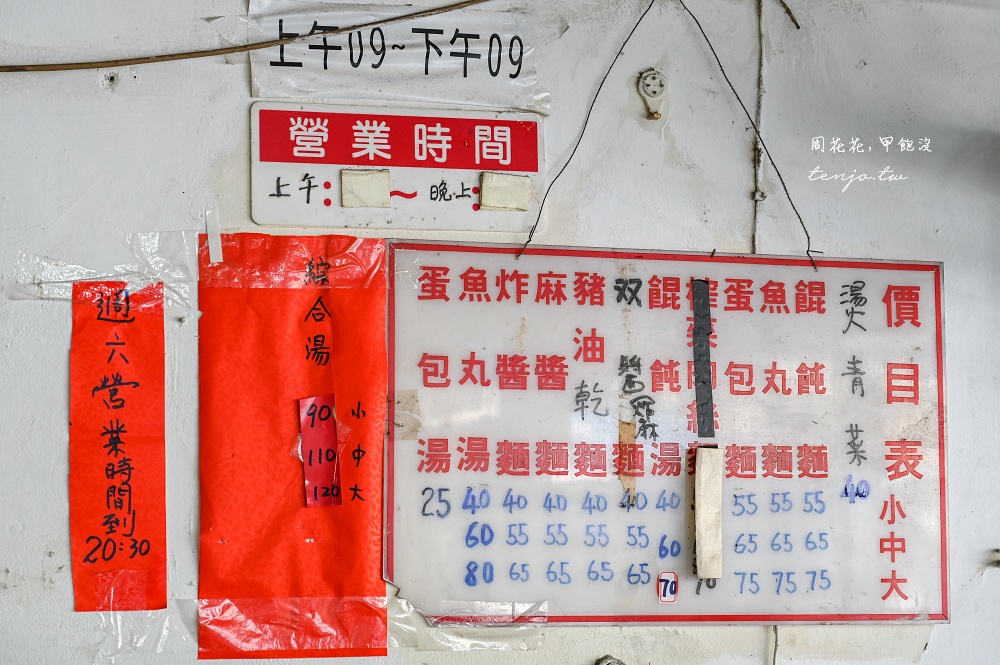 上午09~下午09
營業時間
上午:~晚上:
周花花,甲飽沒
tenjo.tw
價目表 小 中 大
燙青菜 40
餛飩麵 55 65 75
魚丸麵 55 65 75
蛋包麵 55 65 75
餛飩湯 40 60 70
双醬炸麻麵 40 55 65
豬油乾麵 40 55 65
麻醬麵 40 55 65
炸醬麵 40 55 65
魚丸湯 40 60 80
蛋包湯 25
綜合湯
小 90
中 110
大 120
週六營業時間到20:30